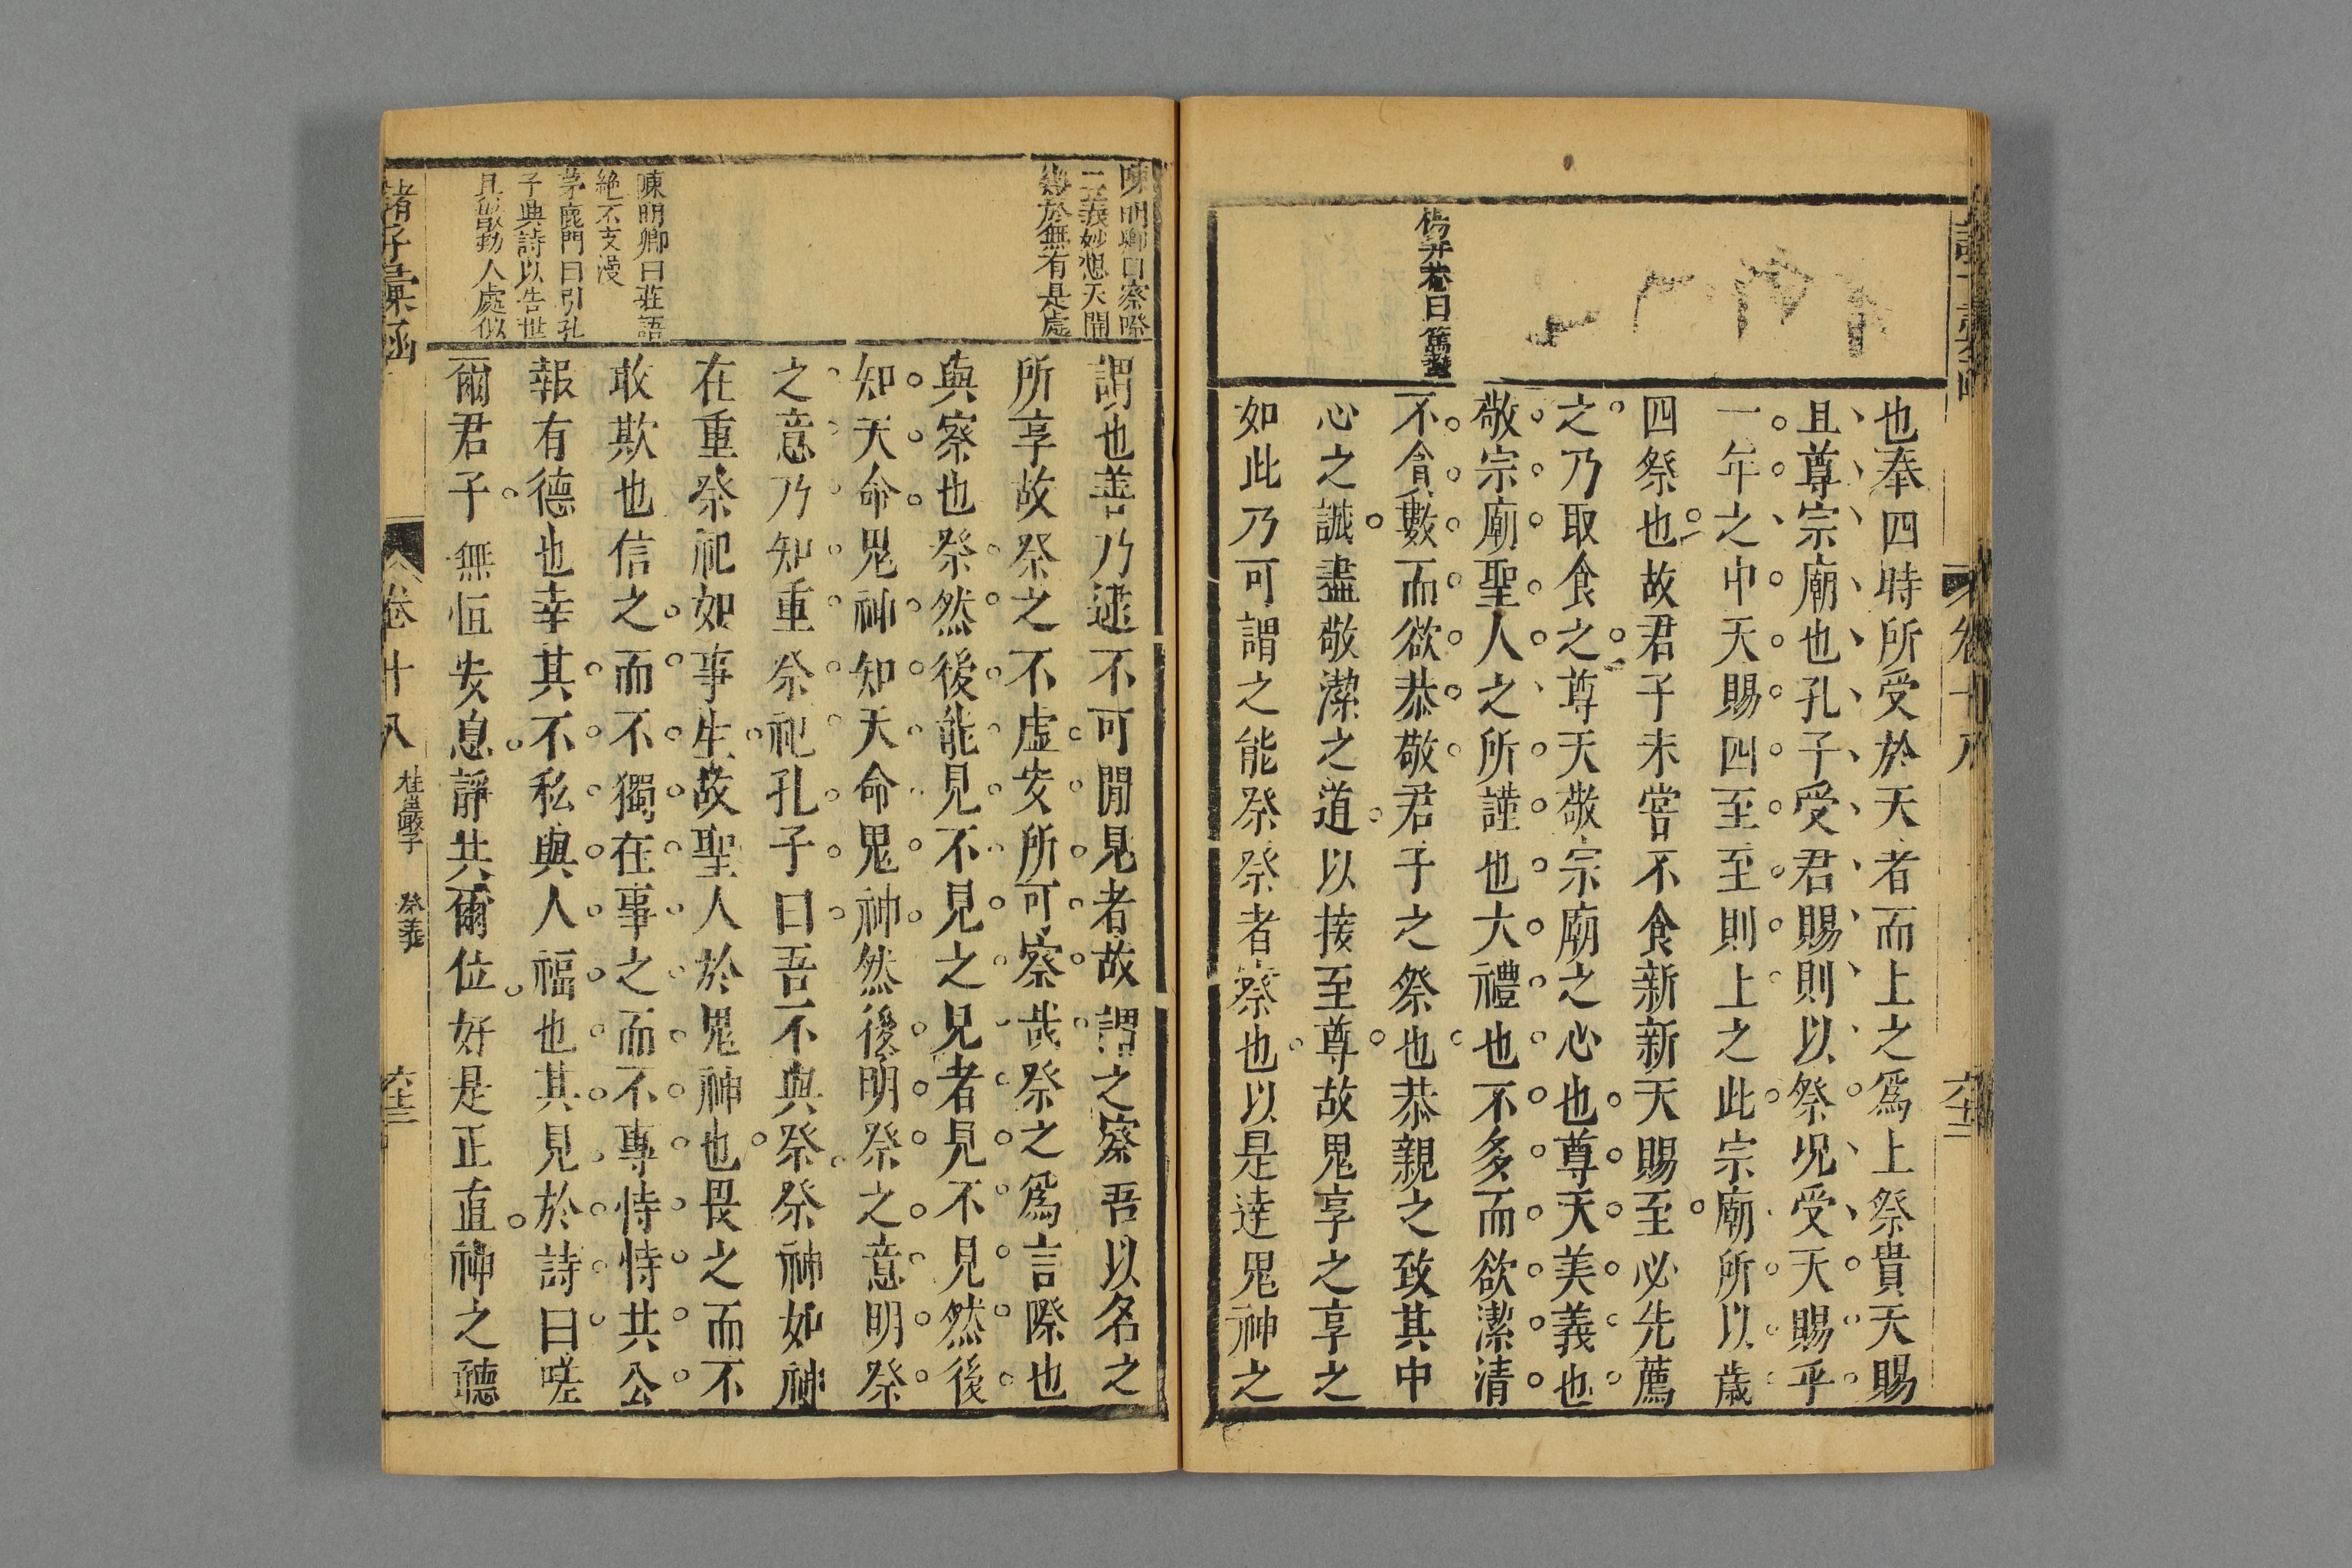 也奉四時所受於天者而上之爲上祭貴天賜
且尊宗廟也孔子受君賜則以祭况受天賜乎
一年之中天賜四至至則上之此宗廟所以歲
四祭也故君子未嘗不食新新天賜至必先薦
之乃取食之尊天敬宗廟之心也尊天美義也
敬宗廟聖人之所謹也大禮也不多而欲潔清
不貪數而欲恭敬君子之祭也恭親之致其中
心之誠盡敬潔之道以接至尊故鬼享之享之
如此乃可謂之能祭祭者察也以是逹鬼神之
曰篤
陳明卿曰察際
二義妙想天開
於無有是處
謂也善乃逮不可聞見者故謂之察吾以名之
所享故祭之不虛安所可察哉祭之爲言際也
與察也祭然後能見不見之見者見不見然後
知天命鬼神知天命鬼神然後明祭之意明祭
之意乃知重祭祀孔子曰吾不與祭祭神如神
在重祭祀如事生故聖人於鬼神也畏之而不
敢欺也信之而不獨在事之而不專恃恃其公
報有德也幸其不私與人福也其見於詩曰嗟
爾君子無恒安息靜共爾位好是正直神之聽
陳明卿曰莊語
絶不支漫
茅鹿門曰引孔
子與詩以告世
具激勸人處似
諸子彙函
卷十八
桂巖子
祭義
六十三